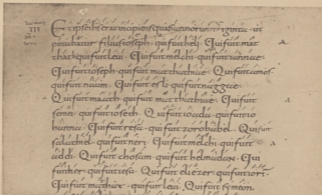 Et ipse ihs erat incipiens quasi annorum triginta ut
putabatur filius ioseph. qui fuit heli. Qui fuit mat
that. qui fuit leui. Qui fuit melchi. qui fuit iannae.
Qui fuit ioseph. qui fuit matthathiae. Qui fuit amos
qui fuit naum. Qui fuit esli. qui fuit naggae
Qui fuit maath. qui fuit matthathiae. Qui fuit
semei. qui fuit iosech. Qui fuit ioada. qui fuit io
hanna. Qui fuit resa. qui fuit zorobabel. Qui fuit
salathiel. qui fuit neri. Qui fuit melchi. qui fuit
addi. Qui fuit chosam. qui fuit helmadam. Qui
fuit her. qui fuit iesu. Qui fuit eliezer. qui fuit iori
Qui fuit matthat. qui fuit leui. Qui fuit symeon